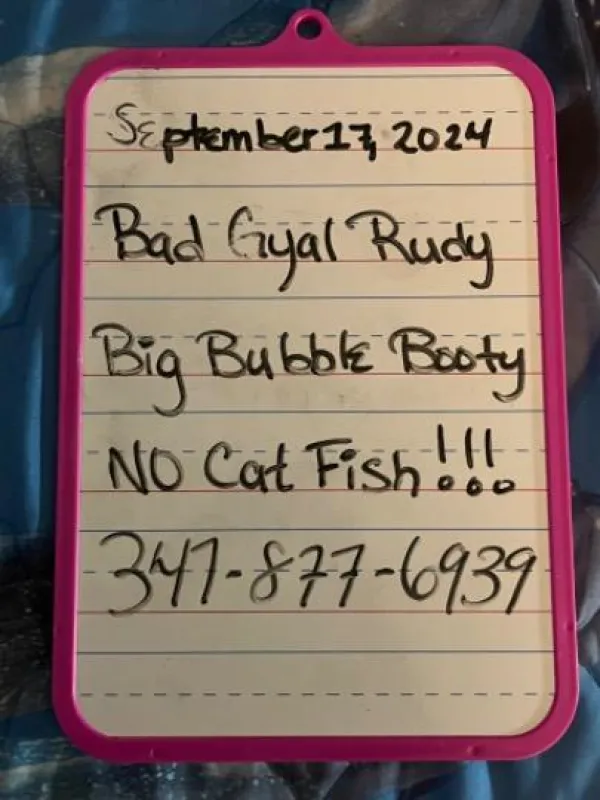 September 17, 2024
Bad Gyal Rudy
Big Bubble Booty
NO Cat Fish!!!
347-877-6939